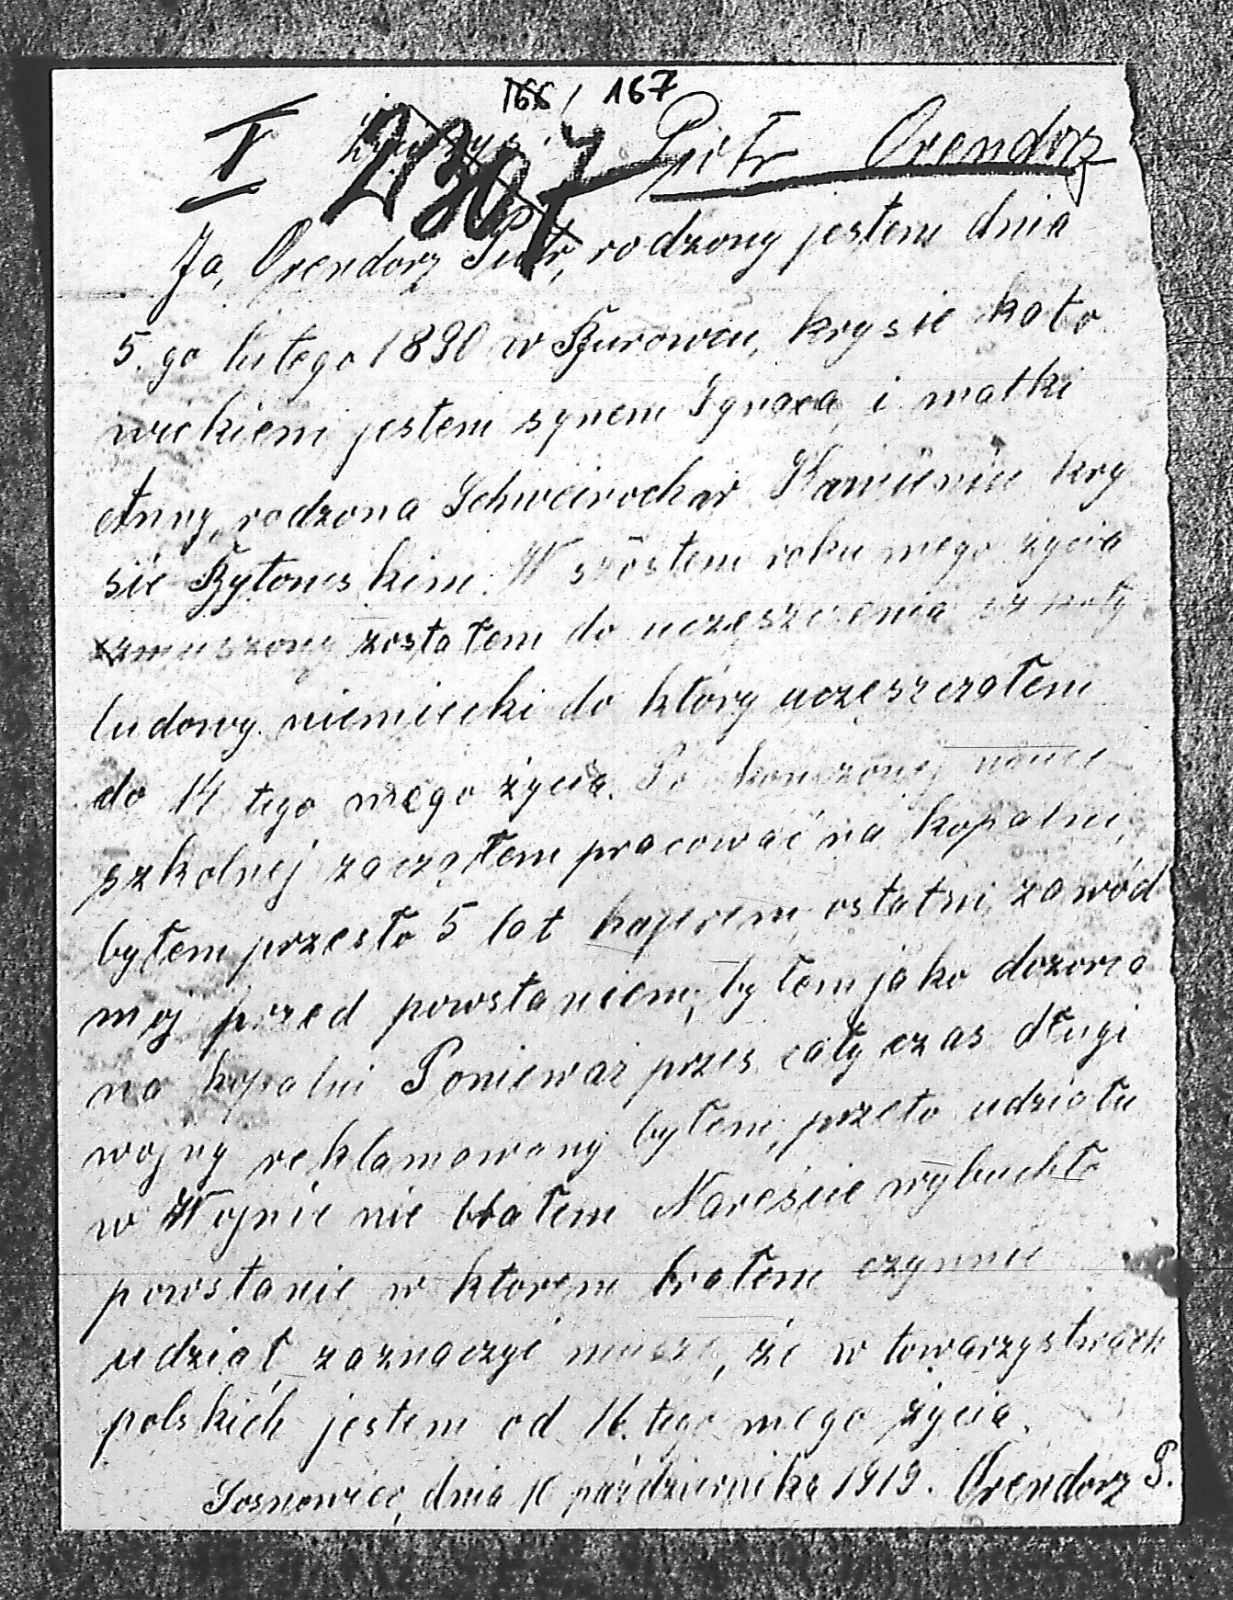 166/ 167
I 2307 Piotr Orendorz
Ja, Orendorz Piotr, rodzony jestem dnia
5. go lutego 1890 w Burowcu, krysie kato
wickiem jestem synem Ignaca i matki
Anny, rodzona Schweinoch w Kamieniu kry
sie Bytomskim. W szóstem roku mego życia
zmuszony zostałem do uczęszczenia szkoły
ludowy niemiecki do który uczęszczałem
do 14 tego mego życia. Po skonczonej nauce
szkolnej zacząłem pracować na kopalni,
byłem przesło 5 lat hajerem, ostatni zawód
moj przed powstaniem, byłem jako dozorca
na kopalni Poniewaź przes cały czas długi
wojny reklamowany byłem, przeto udziału
w Wojnie nie brałem Nareście wybuchło
powstanie w ktorem brałem czynnie
udział, zaznaczyć muszę, że w towarzystwach
polskich jestem od 16. tego mego życia.
Sosnowiec, dnia 16 października 1919. Orendorz P.